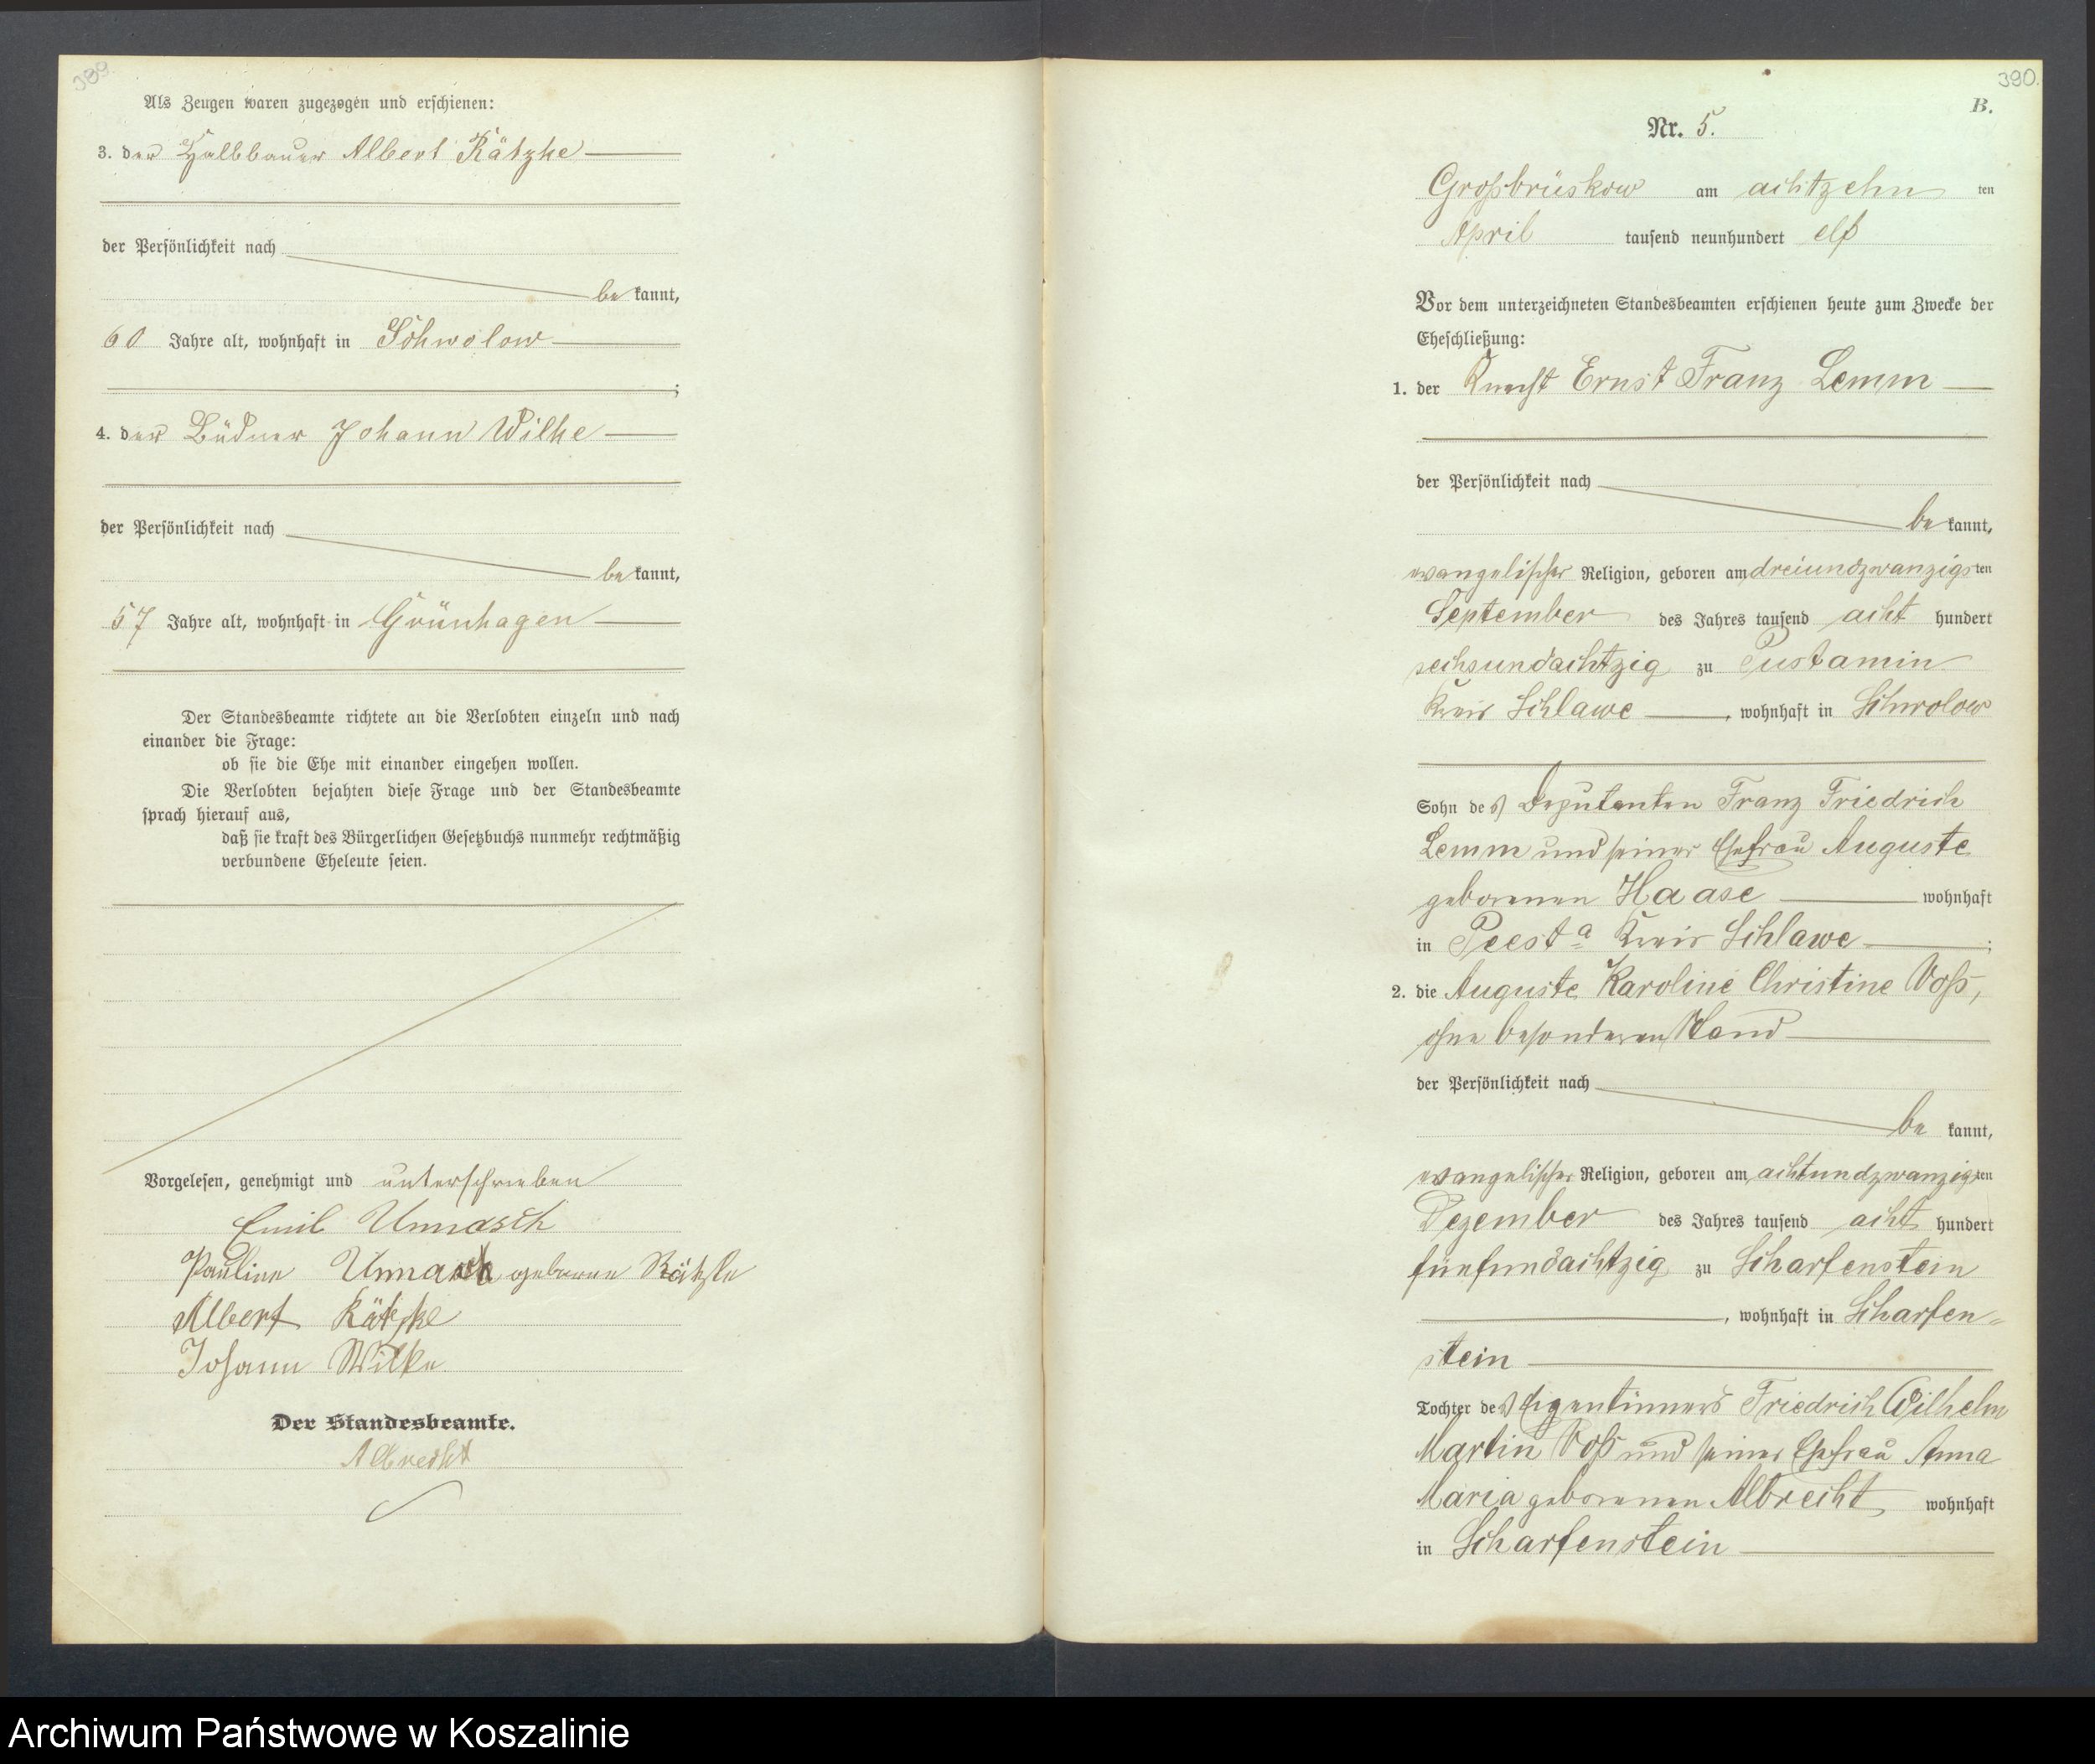 389.
Als Zeugen waren zugezogen und erschienen:
3. der Halbbauer Albert Rätzke
der Persönlichkeit nach
bekannt,
60 Jahre alt, wohnhaft in Schwolow
;
4. der Büdner Johann Wilke
der Persönlichkeit nach
bekannt,
57 Jahre alt, wohnhaft in Grünhagen
Der Standesbeamte richtete an die Verlobten einzeln und nach
einander die Frage:
ob sie die Ehe mit einander eingehen wollen.
Die Verlobten bejahten diese Frage und der Standesbeamte
sprach hierauf aus,
daß sie kraft des Bürgerlichen Gesetzbuchs nunmehr rechtmäßig
verbundene Eheleute seien.
Vorgelesen, genehmigt und unterschrieben
Emil Unnasch
Pauline Unnasch geborene Rätzke
Albert Rätzke
Johann Wilke
Der Standesbeamte.
Albrecht
390.
B.
Nr. 5.
Großbrüskow am achtzehn ten
April tausend neunhundert elf
Vor dem unterzeichneten Standesbeamten erschienen heute zum Zwecke der
Eheschließung:
1. der Knecht Ernst Franz Lemm
der Persönlichkeit nach
bekannt,
evangelischer Religion, geboren am dreiundzwanzigsten
September des Jahres tausend acht hundert
sechsundachtzig zu Pustamin
Kreis Schlawe, wohnhaft in Schwolow
Sohn des Deputanten Franz Friedrich
Lemm und seiner Ehefrau Auguste
geborenen Haase wohnhaft
in Peest a Kreis Schlawe;
2. die Auguste Karoline Christine Voß,
ohne besonderen Stand
der Persönlichkeit nach
bekannt,
evangelischer Religion, geboren am achtundzwanzigsten
Dezember des Jahres tausend acht hundert
fünfundachtzig zu Scharfenstein
, wohnhaft in Scharfen=
stein
Tochter des Eigentümers Friedrich Wilhelm
Martin Voß und seiner Ehefrau Anna
Maria geborenen Albrecht wohnhaft
in Scharfenstein
Archiwum Państwowe w Koszalinie